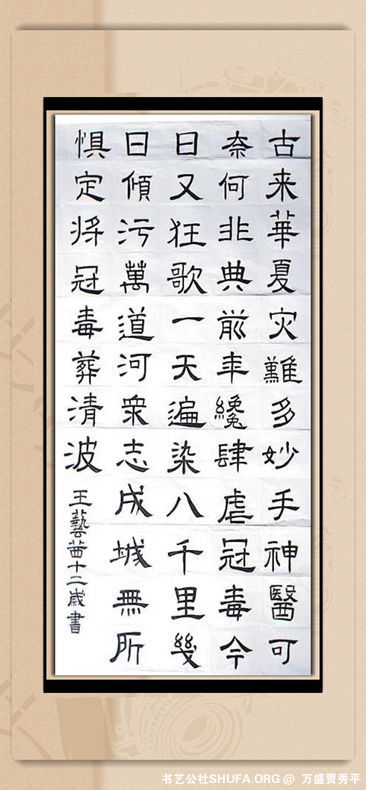 古来華夏灾難多妙手神醫可
奈何非典前年纔肆虐冠毒今
日又狂歌一天遍染八千里幾
日傾污萬道河衆志成城無所
惧定将冠毒葬清波
王藝茜十二歲書
书艺公社SHUFA.ORG @ 万盛贾秀平